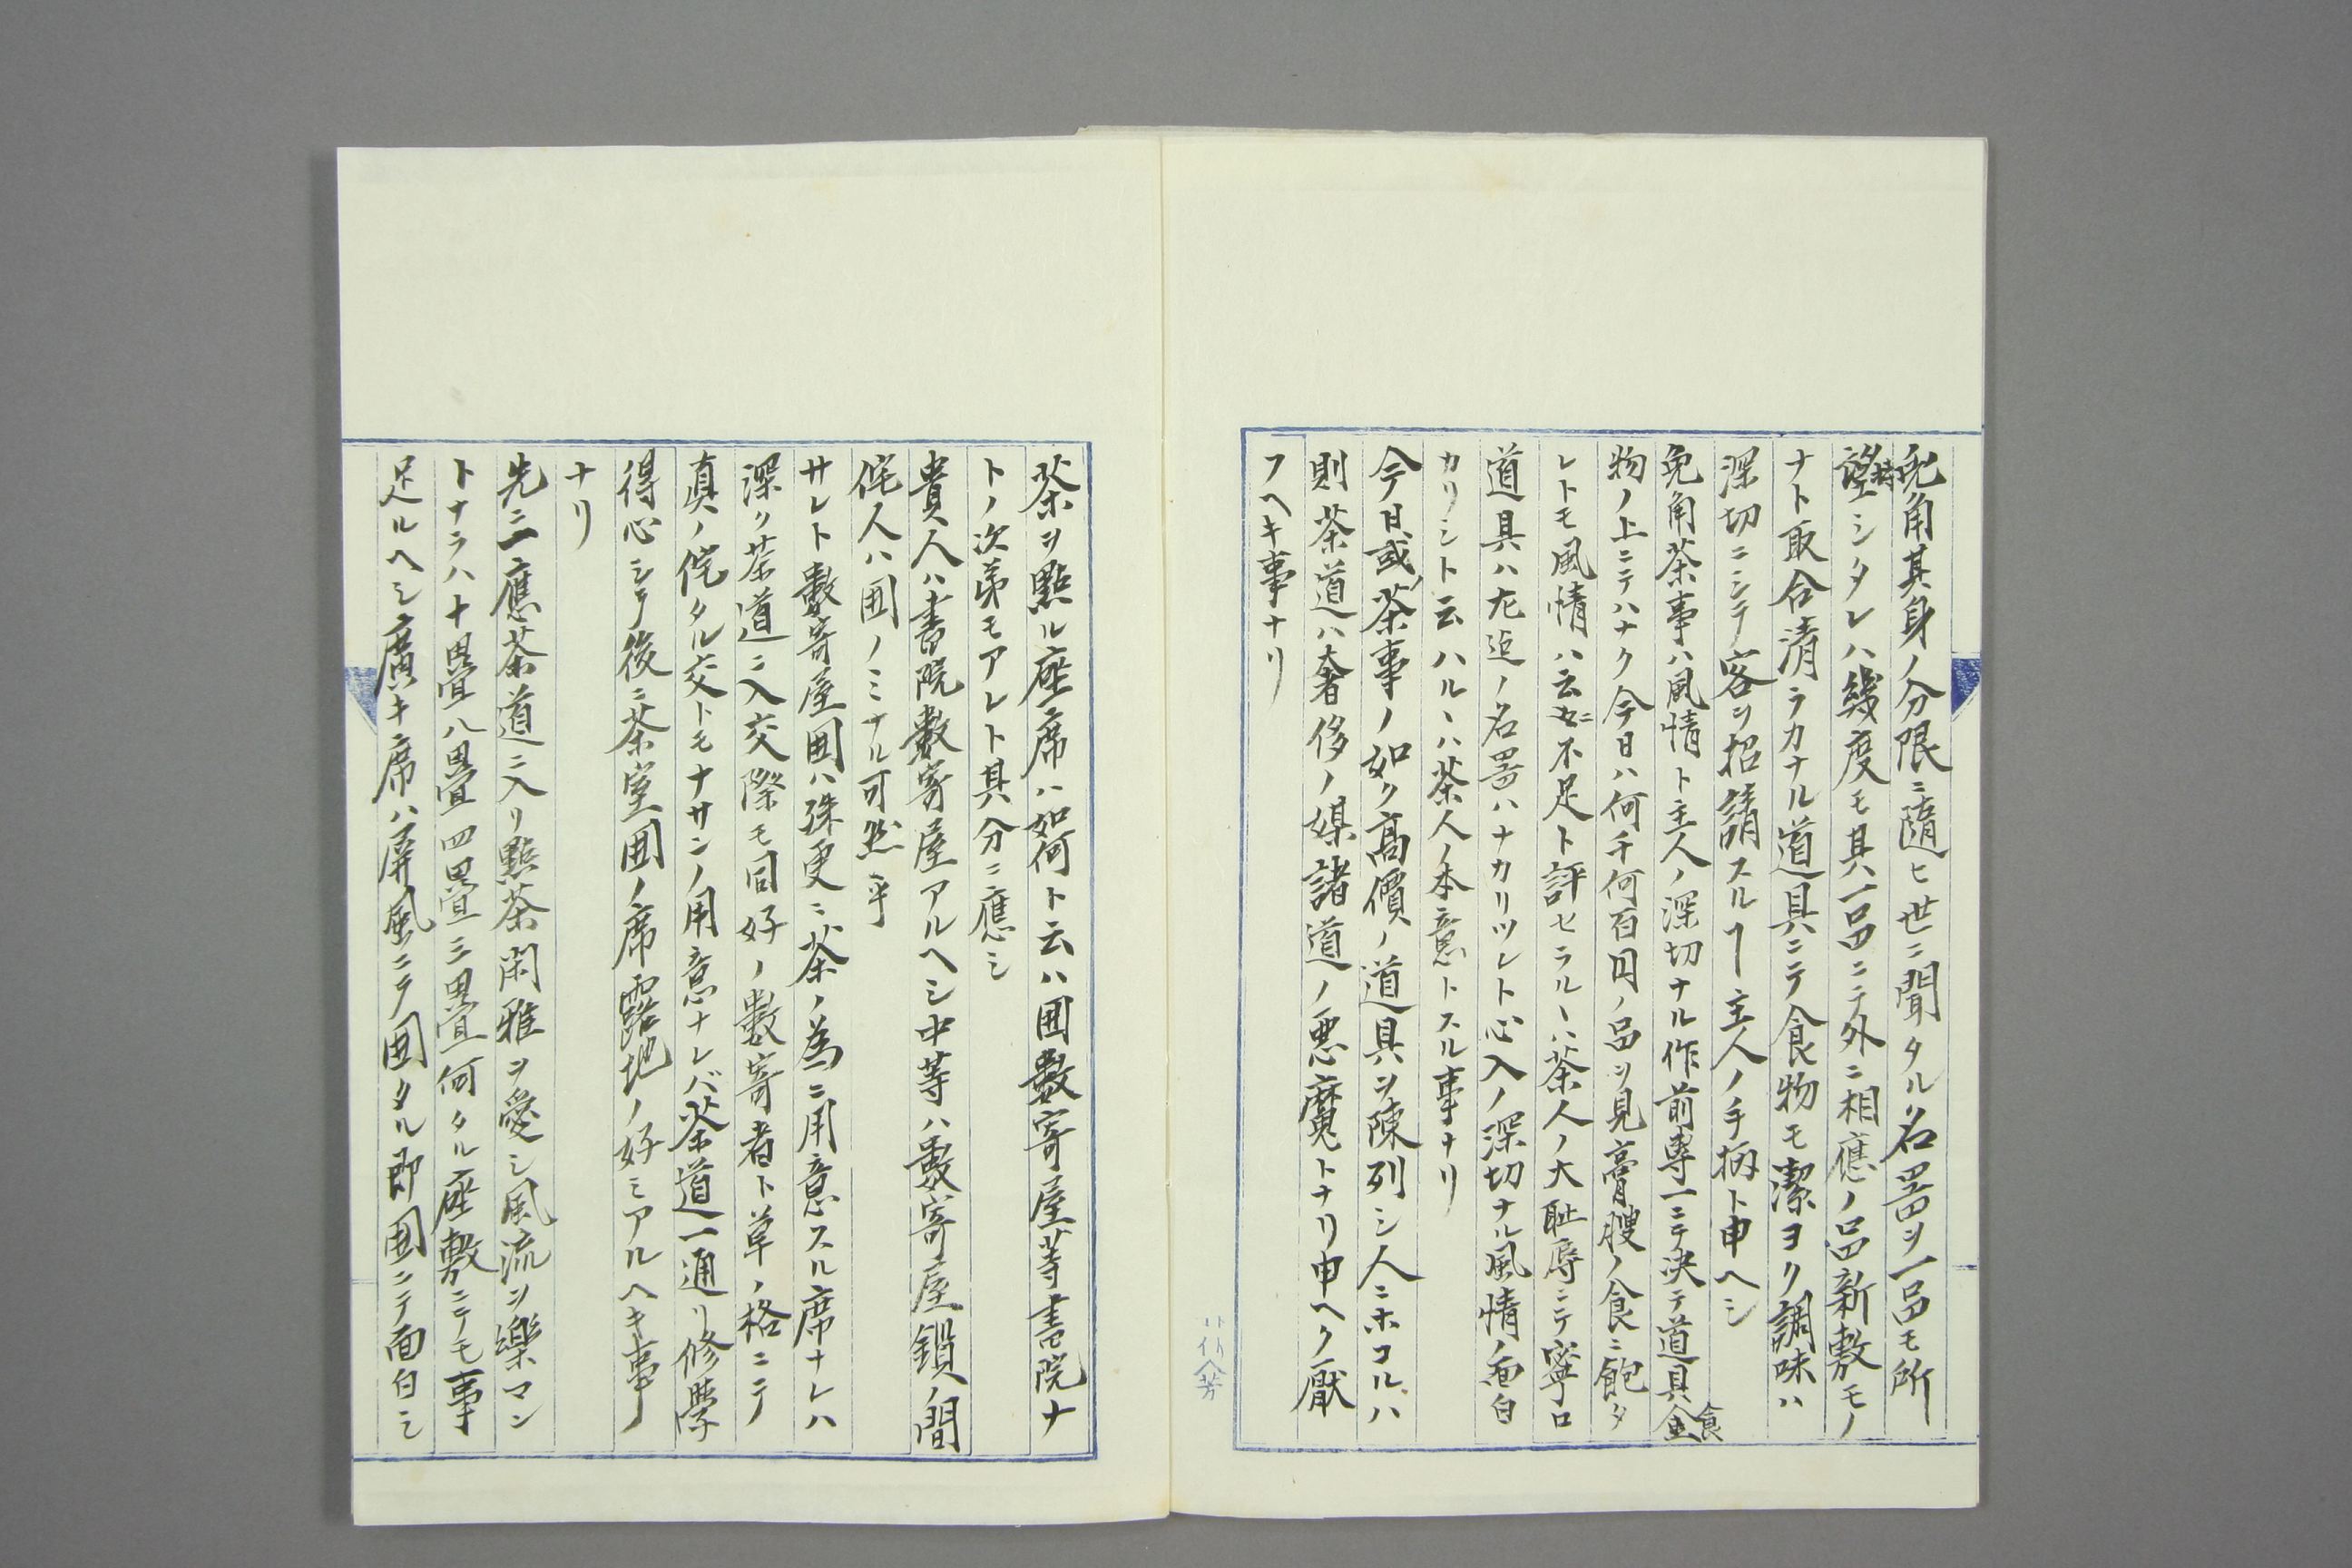 兎角其身ノ分限ニ隨ヒ世ニ聞タル名噐ヲ一品モ所
持
望シタレハ幾度モ其一品ニテ外ニ相應ノ品新敷モノ
ナト取合清ラカナル道具ニテ食物モ潔ヨク調味ハ
深切ニシテ客ヲ招請スルヿ主人ノ手柄ト申ヘシ
兎角茶事ハ風情ト主人ノ深切ナル作前專一ニテ決テ道具食
物ノ上ニテハナク今日ハ何千何百円ノ品ヲ見膏膄ノ食ニ飽タ
レトモ風情ハ云々ニ不足ト評セラルヽハ茶人ノ大耻辱ニテ寧ロ
道具ハ左迠ノ名噐ハナカリツレト心入ノ深切ナル風情ノ面白
カリシト云ハルヽハ茶人ノ本意トスル事ナリ
今日或ノ茶事ノ如ク髙價ノ道具ヲ陳列シ人ニホコルハ
則茶道ハ奢侈ノ媒諸道ノ悪魔トナリ申ヘク厭
フヘキ事ナリ
茶ヲ點ル座席ハ如何ト云ハ囲數寄屋等書院ナ
トノ次第モアレト其分ニ應シ
貴人ハ書院數寄屋アルヘシ中等ハ數寄屋鎖ノ間
侘人ハ囲ノミナル可然乎
サレト數寄屋囲ハ殊更ニ茶ノ為ニ用意スル席ナレハ
深ク茶道ニ入交際モ同好ノ數寄者ト草ノ格ニテ
眞ノ侘タル交トモナサンノ用意ナレバ茶道一通リ修學
得心シテ後ニ茶室囲ノ席露地ノ好ミアルヘキ事
ナリ
先ニ一應茶道ニ入リ點茶閑雅ヲ愛シ風流ヲ樂マン
トナラハ十畳八畳四畳三畳何タル座敷ニテモ事
足ルヘシ廣キ席ハ屏風ニテ囲タル即囲ニテ面白シ